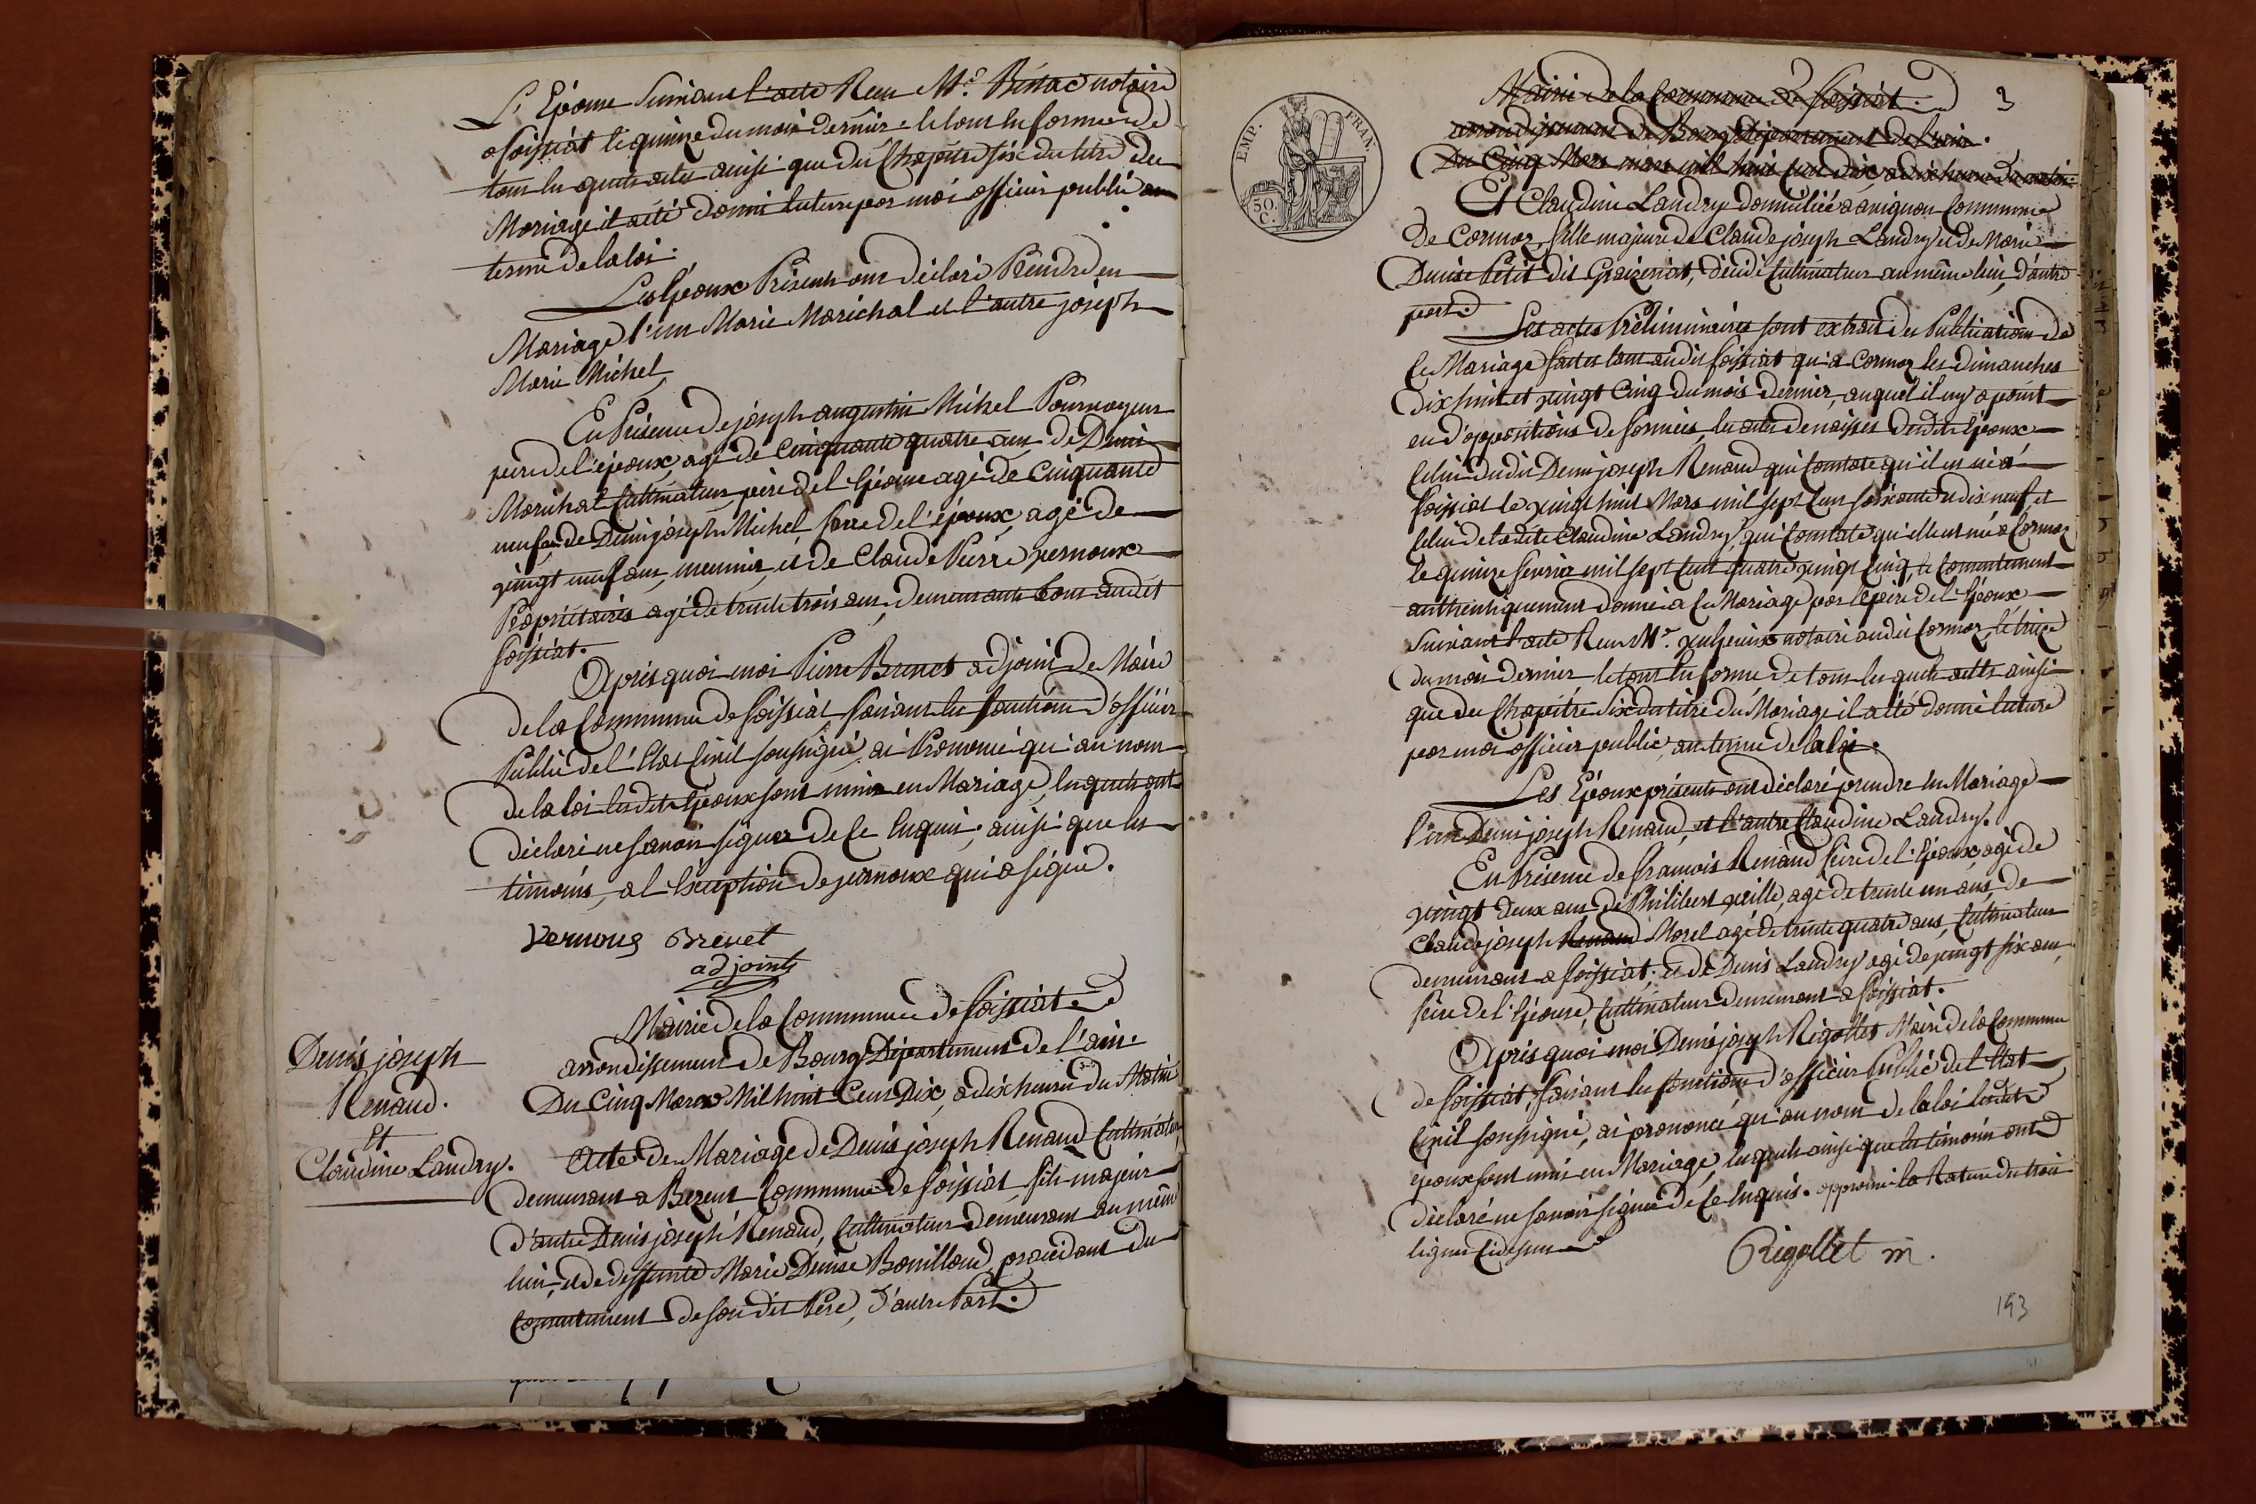 L'Epouse suivant l'acte Recu Mr. Benac notaire
a foissiat le quinze du mois dernier le tout en forme de
tous lesquels actes ainsi que du Chapitre six du titre du
Mariage il a été donné lecture par moi officier public au
terme de la loi.
Les Epoux Présents ont déclaré Prendre en
Mariage l'un Marie Maréchal et l'autre joseph
Marie Michel
En Présence de joseph augustin Michel
pere de l'époux, agé de cinquante quatre ans, de Denis
Maréchal Cultivateur, pere de l'Epouse agé de Cinquante
neuf ans de Denis joseph Michel, frere de l'époux, agé de
vingt neuf ans, meunier, et de Claude Pierre Vernoux
Propriétaire agé de trente trois ans, demeurants tous audit
foissiat.
Après quoi moi Pierre Brevet adjoint de Maire
de la Commune de foissiat faisant les fonctions d'officier
Public de l'Etat Civil soussigné, ai Prononcé qu'au nom
de la loi lesdits Epoux sont unis en Mariage, lesquels ont
déclaré ne savoir signer de ce Enquis, ainsi que les
témoins, a l'Exception de vernoux qui a signé.
Vernoux Brevet
adjoint
Mairie de la Commune de foissiat
arrondissement de Bourg Département de l'ain
Denis joseph
Renaud.
Et
Claudine Landry.
Du Cinq Mars Mil huit Cent Dix, a dix heures du Matin
Acte de Mariage de Denis joseph Renaud Cultivateur,
demeurant a Bezent Commune de foissiat, fils majeur
d'autre Denis joseph Renaud, Cultivateur demeurant au même
lieu, et de deffunte Marie Denise Bouilloud, procédant du
Consentement de son dit Père, d'autre Part.
EMP. FRAN.
50. C.
3
Mairie de la Commune de foissiat.
arrondissement de Bourg Département de l'ain.
Du Cinq Mars mil huit cent dix, a dix heures du matin.
Et Claudine Landry domiciliée a avignon Commune
de Cormoz, fille majeure de Claude joseph Landry et de Marie
Denise Petit dit Graizenat, décédé Cultivateur au même lieu, d'autre
part.
Les actes Préliminaires sont extraits des Publications de
ce Mariage faites tant audit foissiat qu'a Cormoz les dimanches
dix huit et vingt Cinq du mois dernier, auquel il n'y a point
eu d'oppositions de formées, les actes de naissances desdits Epoux
Celui dudit Denis joseph Renaud qui Constate qu'il est né a
foissiat le vingt huit Mars mil sept cent soixante et dix neuf, et
Celui de ladite Claudine Landry, qui Constate qu'elle est née a Cormoz
le quinze fevrier mil sept cent quatre vingt Cinq, le Consentement
authentiquement donné a ce Mariage par le pere de l'Epoux
suivant l'acte Recu Mr. notaire audit Cormoz, le treize
du mois dernier le tout en forme de tous lesquels actes ainsi
que du Chapitre Six du titre du Mariage il a été donné lecture
par moi officier public, au terme de la loi.
Les Epoux présents ont déclaré prendre en Mariage
l'un Denis joseph Renaud, et l'autre Claudine Landry.
En Présence de francois Renaud frere de l'Epoux, agé de
vingt deux ans, de Philibert veille, agé de trente un ans, de
Claude joseph Renaud Morel agé de trente quatre ans, Cultivateurs
demeurant a foissiat, et de Denis Landry agé de vingt six ans,
frere de l'Epouse, Cultivateur demeurant a foissiat.
Après quoi moi Denis joseph Rigollet Maire de la Commune
de foissiat, faisant les fonctions d'officier Public de l'Etat
Civil soussigné, ai prononcé qu'au nom de la loi lesdits
époux sont unis en Mariage, lesquels ainsi que les témoins ont
déclaré ne savoir signer de ce Enquis. approuvé la Rature des trois
lignes Cidessus
Rigollet m.
193